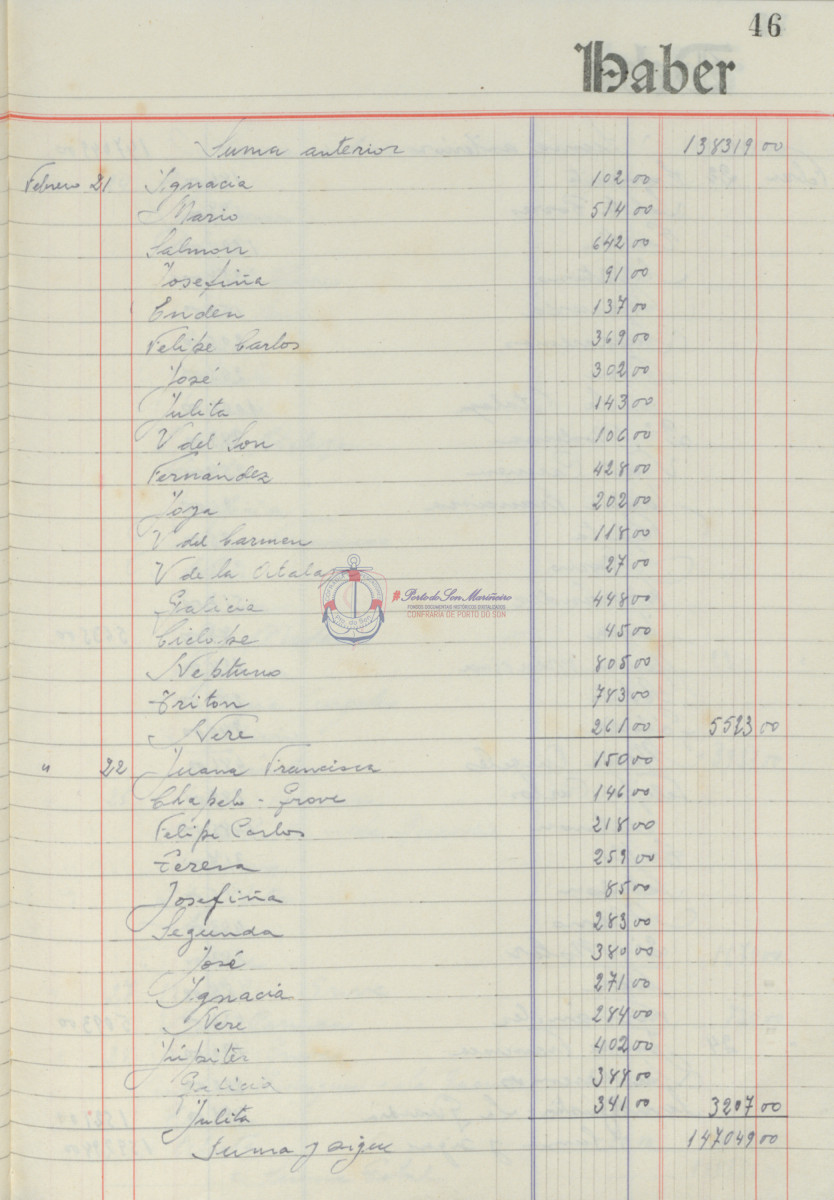 46
Haber
Suma anterior 138319 00
Febrero 21 Ignacia 102 00
Mario 514 00
Salmon 642 00
Josefiña 91 00
Enden 137 00
Felipe Carlos 369 00
José 302 00
Julita 143 00
V del Son 106 00
Fernández 428 00
Joya 202 00
V del Carmen 118 00
V de la Atalaya 27 00
Galicia 448 00
Ciclope 45 00
Neptuno 805 00
Tritón 783 00
Nere 261 00 5523 00
" 22 Juana Francisca 150 00
Chapelo - Grove 146 00
Felipe Carlos 218 00
Teresa 259 00
Josefiña 85 00
Segunda 283 00
José 380 00
Ignacia 271 00
Nere 284 00
Júpiter 402 00
Galicia 388 00
Julita 341 00 3207 00
Suma y sigue 147049 00
#Porto do Son Mariñeiro
FONDOS DOCUMENTAIS HISTÓRICOS DIXITALIZADOS
CONFRARÍA DE PORTO DO SON